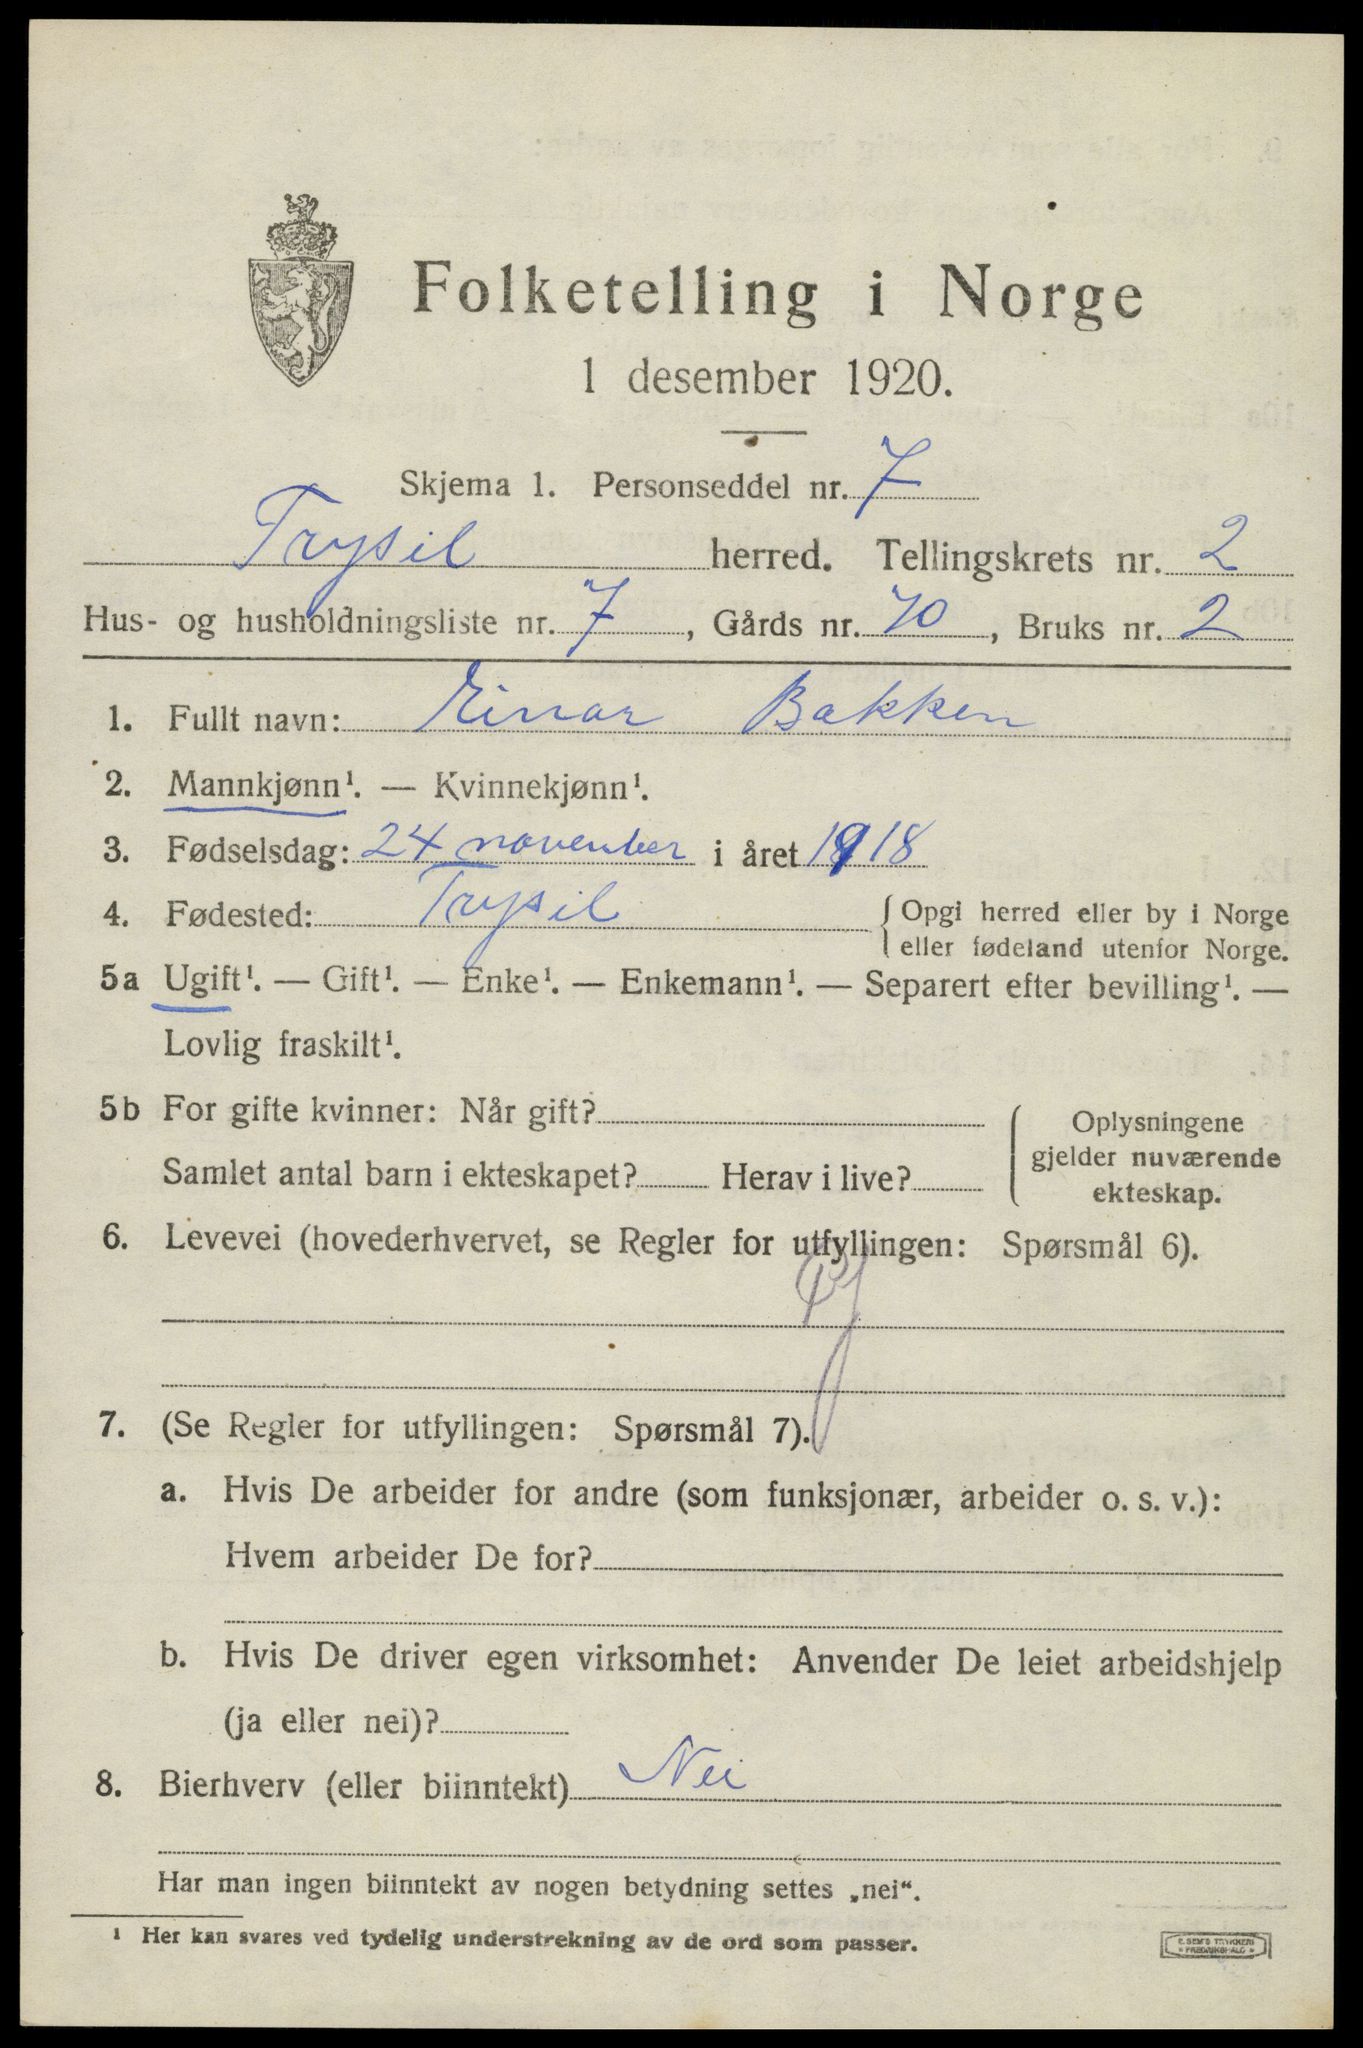 Folketelling i Norge
1 desember 1920.
Skjema 1. Personseddel nr. 7
Trysil herred. Tellingskrets nr. 2
Hus- og husholdningsliste nr. 7, Gårds nr. 70, Bruks nr. 2
1. Fullt navn: Einar Bakken
2. Mannkjønn¹. — Kvinnekjønn¹.
3. Fødselsdag: 24 november i året 1918
4. Fødested: Trysil { Opgi herred eller by i Norge
eller fødeland utenfor Norge.
5a Ugift¹. — Gift¹. — Enke¹. — Enkemann¹. — Separert efter bevilling¹. —
Lovlig fraskilt¹.
5b For gifte kvinner: Når gift?
Samlet antal barn i ekteskapet? Herav i live?
Oplysningene
gjelder nuværende
ekteskap.
6. Levevei (hovederhvervet, se Regler for utfyllingen: Spørsmål 6).
7. (Se Regler for utfyllingen: Spørsmål 7).
a. Hvis De arbeider for andre (som funksjonær, arbeider o. s. v.):
Hvem arbeider De for?
b. Hvis De driver egen virksomhet: Anvender De leiet arbeidshjelp
(ja eller nei)?
8. Bierhverv (eller biinntekt) Nei
Har man ingen biinntekt av nogen betydning settes „nei“.
¹ Her kan svares ved tydelig understrekning av de ord som passer.
E. SEM'S TRYKKERI
FREDRIKSHALD